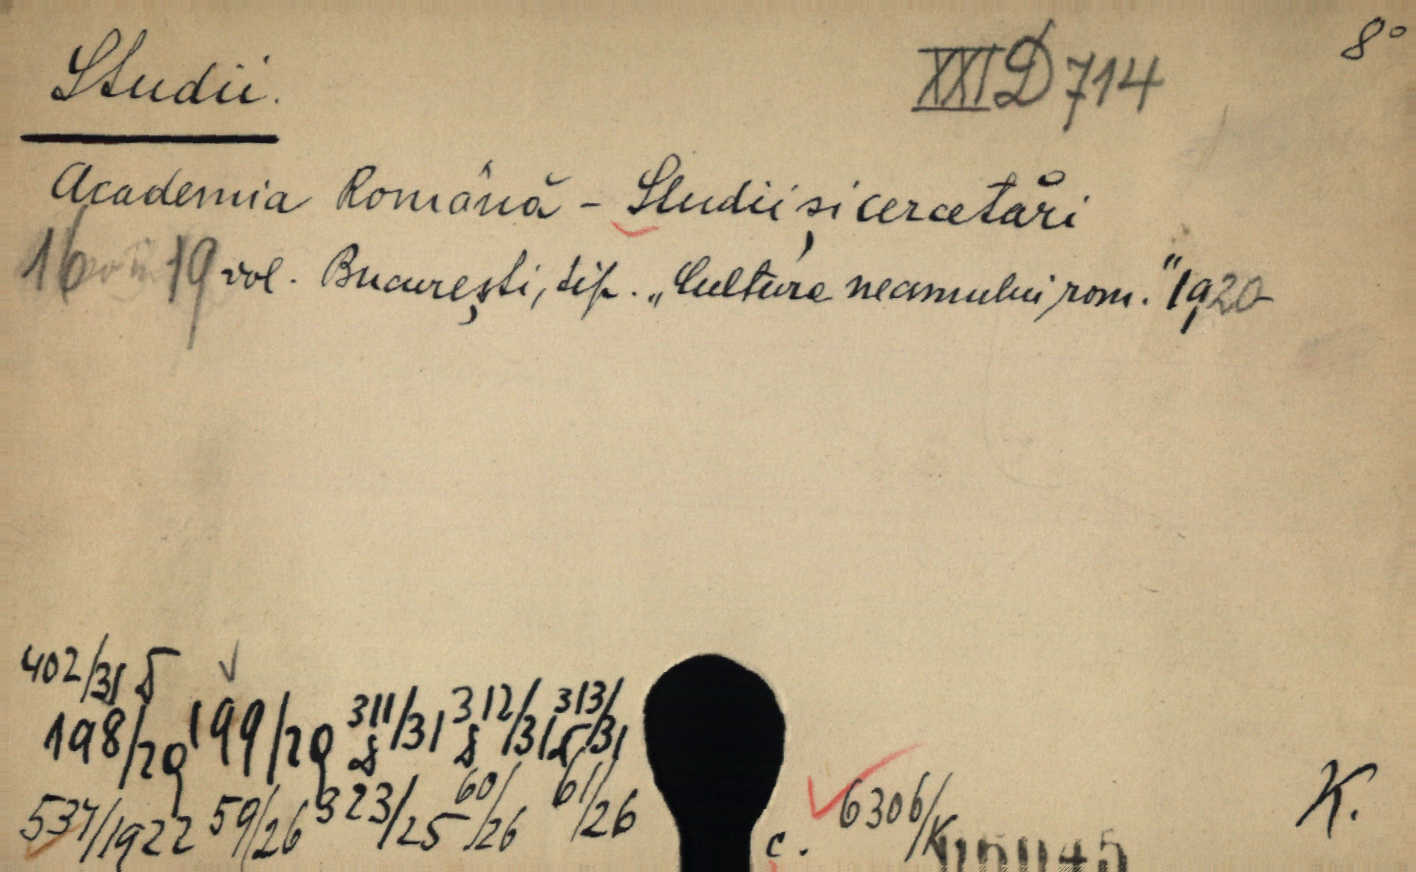 8°
Studii.
XXI D 714
Academia Română - Studii și cercetări
16 19 vol. București, tip. „Cultura neamului rom." 1920
402/31 S
198/29 199/29 311/31 S 312/31 S 313/31 S
537/1922 59/26 323/25 60/26 61/26
c. 6306/K
K.